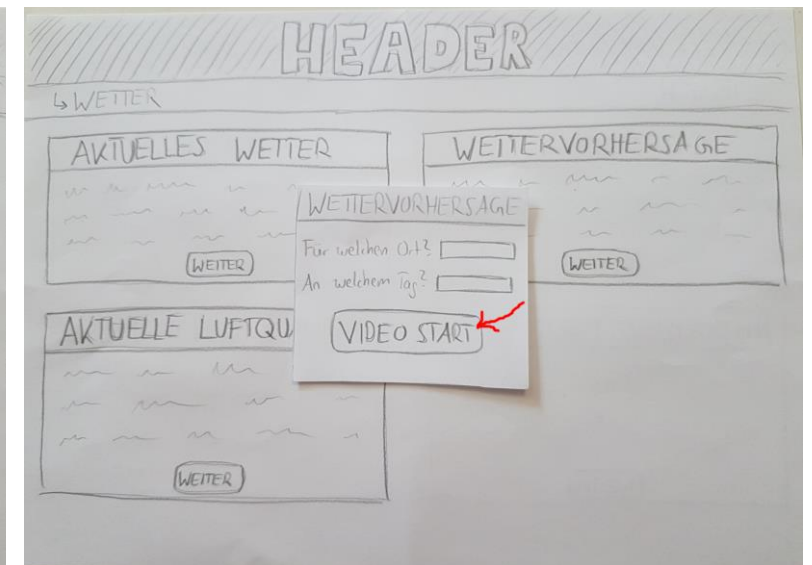 HEADER
↳ WETTER
AKTUELLES WETTER
WEITER
WETTERVORHERSAGE
WEITER
WETTERVORHERSAGE
Für welchen Ort?
An welchem Tag?
VIDEO START
AKTUELLE LUFTQU
WEITER